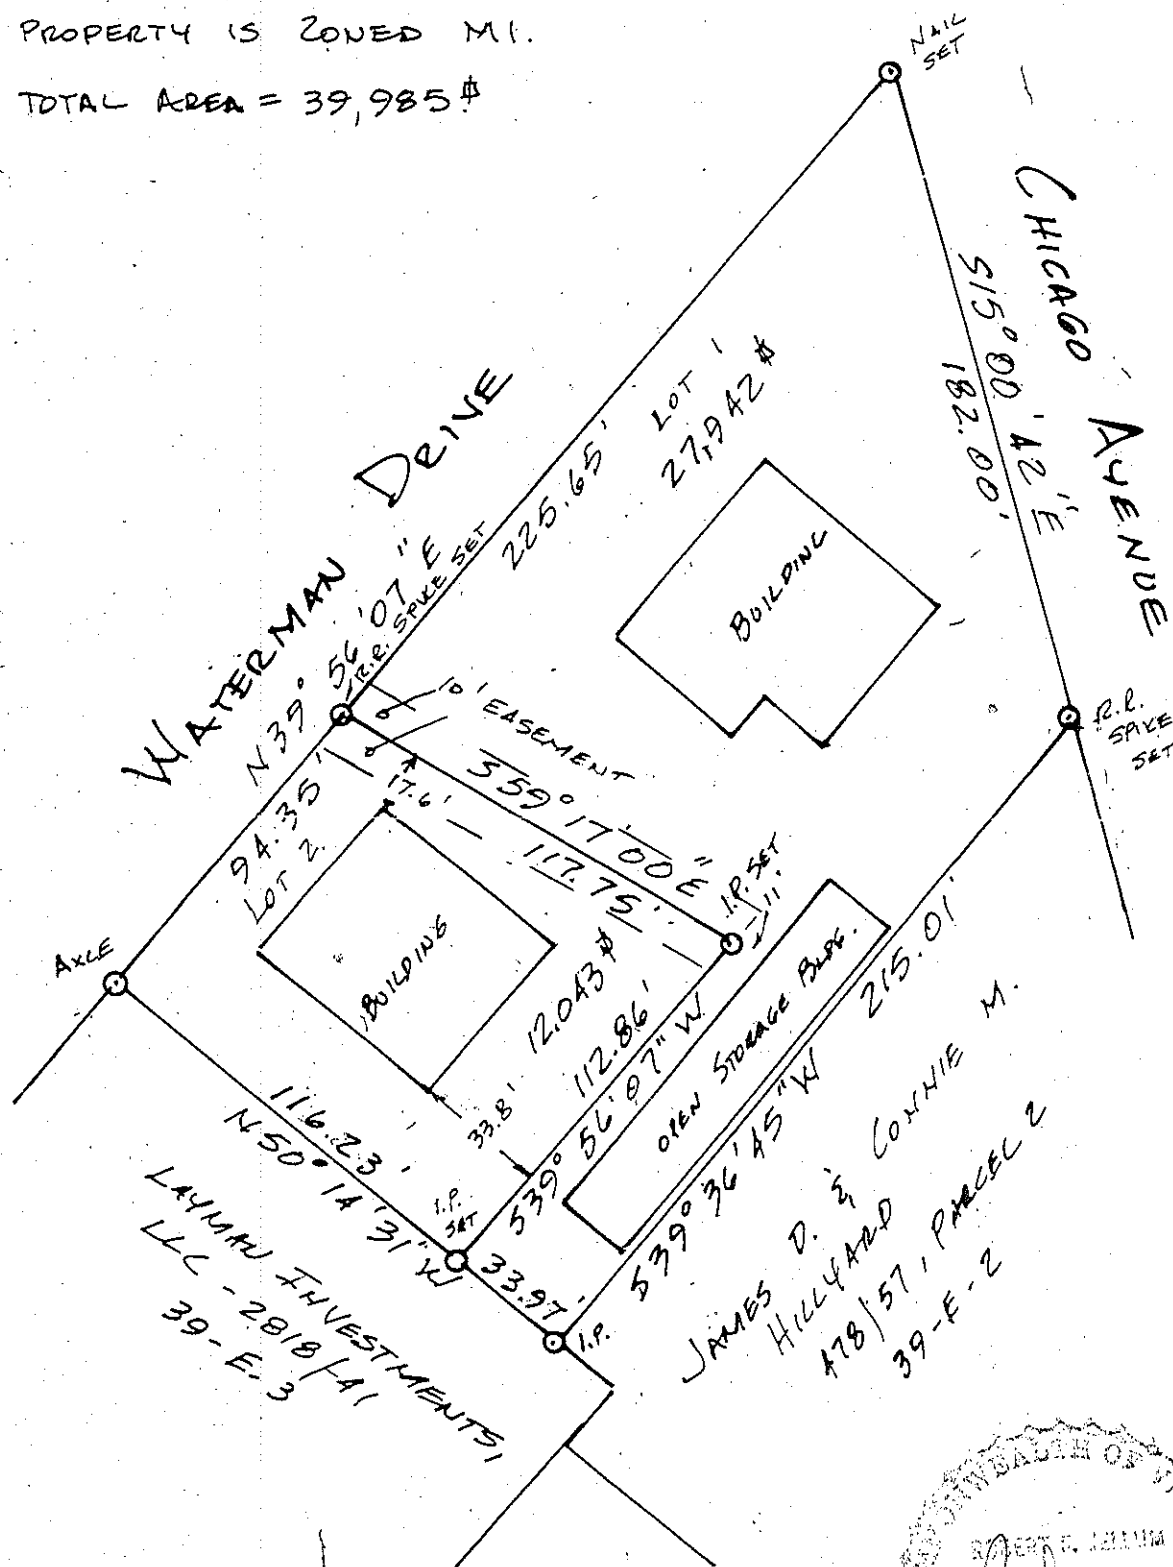 PROPERTY IS ZONED M1.
TOTAL AREA = 39,985 ⏍
NAIL
SET
CHICAGO AVENUE
S15° 00' 42" E
182.00'
LOT 1
27,942 ⏍
WATERMAN DRIVE
225.65'
N39° 56' 07" E
R.R. SPIKE SET
BUILDING
R.R.
SPIKE
SET
10' EASEMENT
S59° 17' 00" E
117.75'
17.6'
94.35'
LOT 2
I.P. SET
11'
AXLE
BUILDING
12,043 ⏍
112.86'
S39° 56' 07" W
33.8'
OPEN STORAGE BLDG.
215.01'
S39° 36' 45" W
116.23'
N50° 14' 31" W
I.P.
SET
33.97'
I.P.
LAYMAN INVESTMENTS,
LLC - 2818/41
39-E-3
JAMES D. & CONNIE M.
HILLYARD
478/57, PARCEL 2
39-E-2